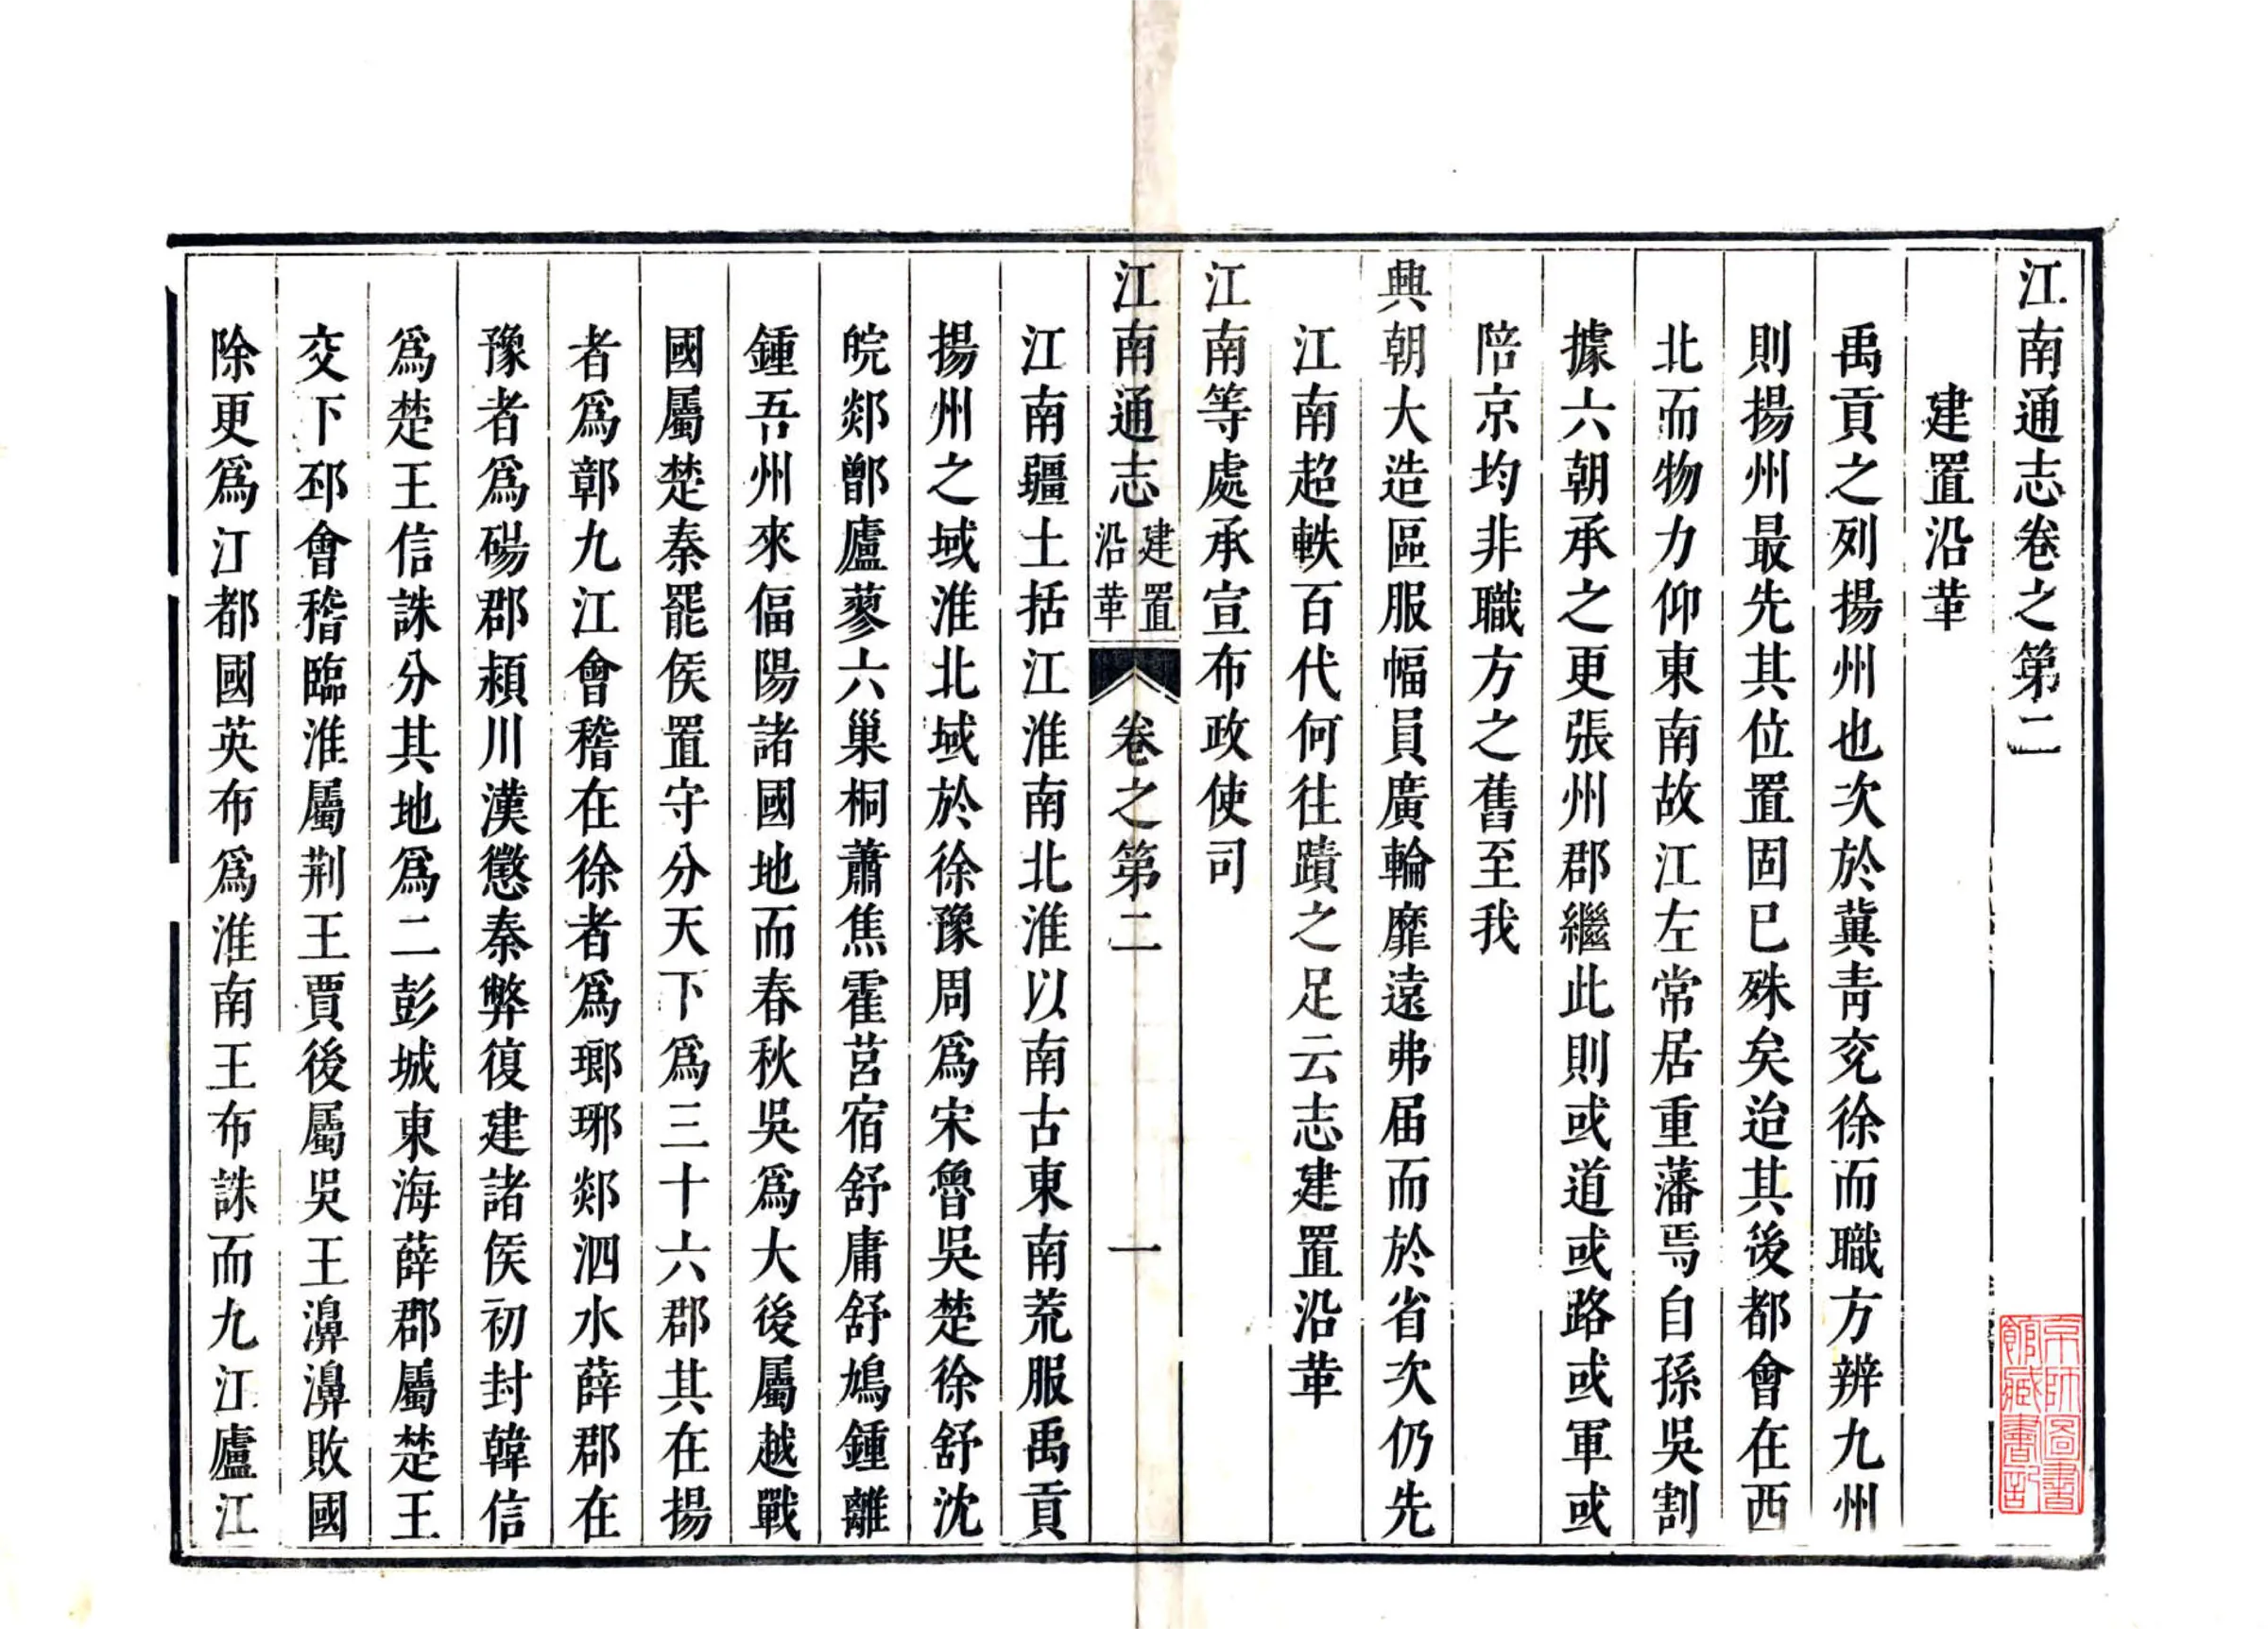 江南通志卷之第二
建置沿革
禹貢之列揚州也次於冀青兖徐而職方辨九州
則揚州最先其位置固已殊矣迨其後都會在西
北而物力仰東南故江左常居重藩焉自孫吳割
據六朝承之更張州郡繼此則或道或路或軍或
陪京均非職方之舊至我
興朝大造區服幅員廣輪靡遠弗届而於省次仍先
江南超軼百代何徃蹟之足云志建置沿革
江南等處承宣布政使司
江南通志
建置
沿革
卷之第二
一
江南疆土括江淮南北淮以南古東南荒服禹貢
揚州之域淮北域於徐豫周爲宋魯吳楚徐舒沈
皖郯鄫廬蓼六巢桐蕭焦霍莒宿舒庸舒鳩鍾離
鍾吾州來偪陽諸國地而春秋吳爲大後屬越戰
國屬楚秦罷侯置守分天下爲三十六郡其在揚
者爲鄣九江會稽在徐者爲瑯琊郯泗水薛郡在
豫者爲碭郡潁川漢懲秦弊復建諸侯初封韓信
爲楚王信誅分其地爲二彭城東海薛郡屬楚王
交下邳會稽臨淮屬荆王賈後屬吳王濞濞敗國
除更爲江都國英布爲淮南王布誅而九江廬江
京師圖書
館藏書記